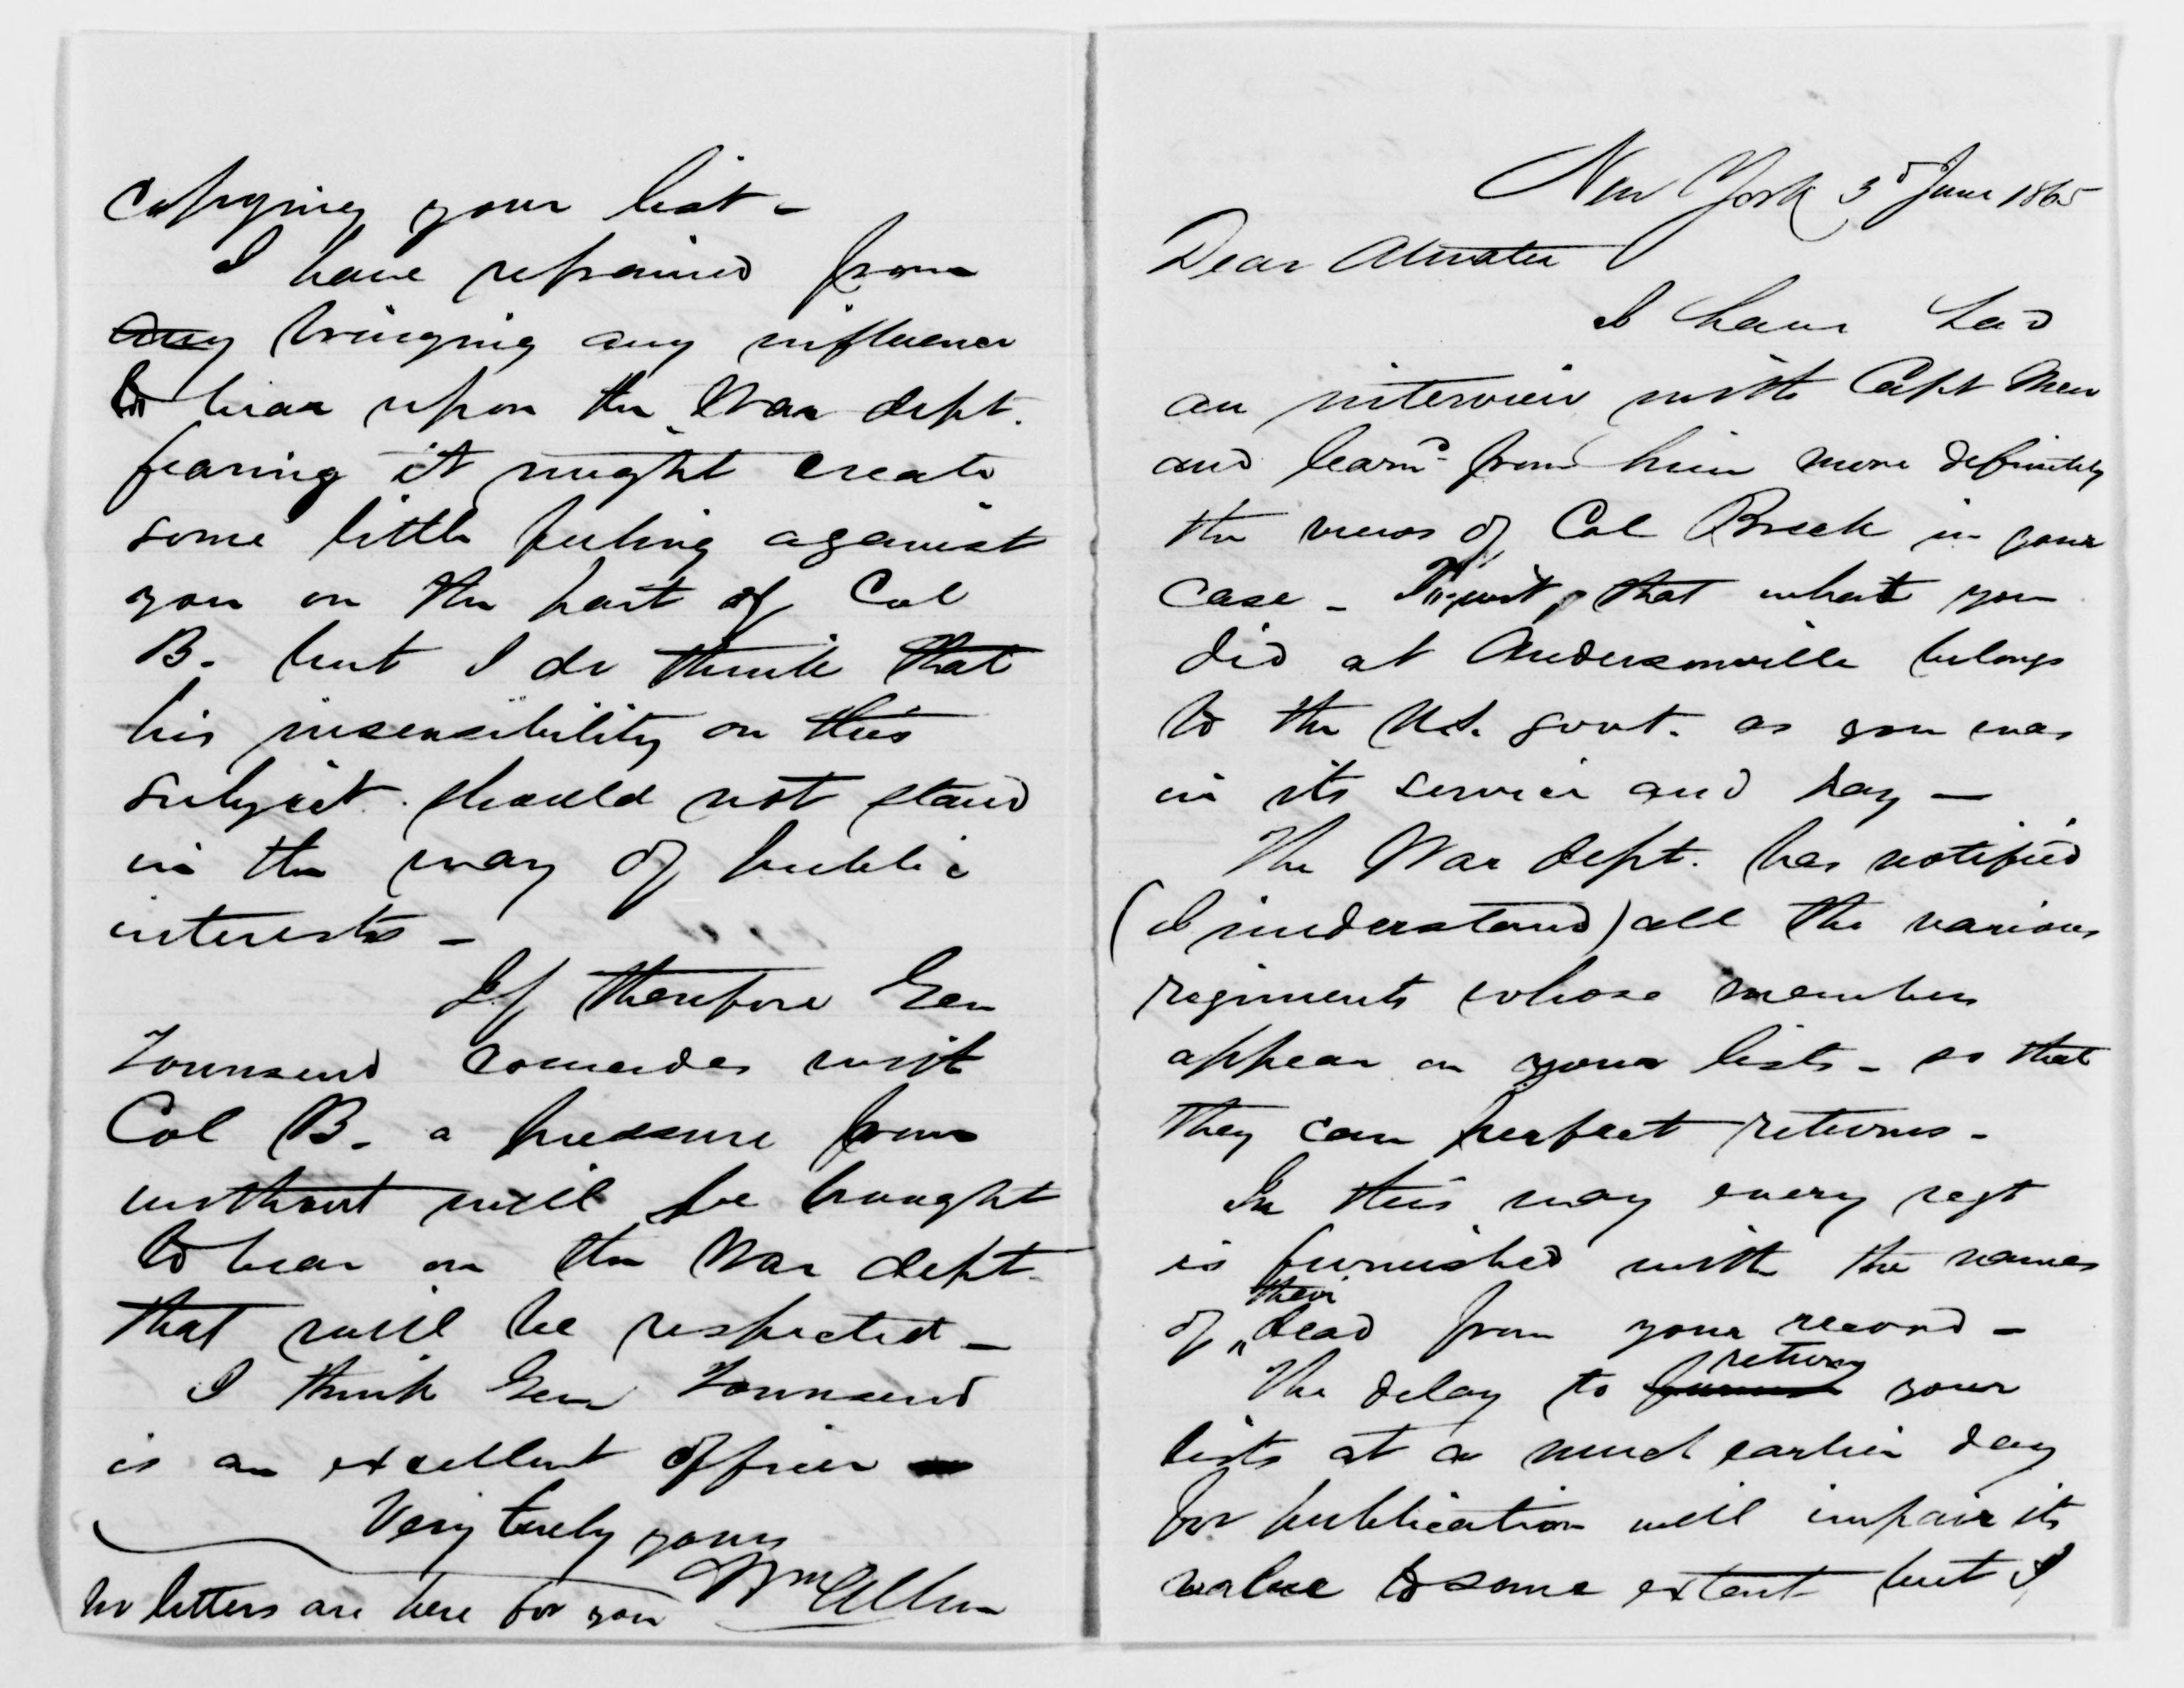 New York 3d June 1865
Dear Atwater
I have had
an interview with Capt Mew
and learnd from him more definitely
the views of Col Breck in your
case - To wit, that what you
did at Andersonville belongs
to the U.S. govt. as you was
in its service and pay —
The War dept. has notified
(I understand) all the various
regiments whose members
appear on your lists - so that
they can perfect returns -
In this way every regt
is furnished with the names
of their dead from your record -
The delay to return your
lists at a much earlier day
for publication will impair its
value to some extent but I
copying your list -
I have refrained from
any bringing any influence
to bear upon the War dept.
fearing it might create
some little feeling against
you on the part of Col
B. but I do think that
his insensibility on this
subject should not stand
in the way of public
interests -
If therefore Gen
Townsend coincides with
Col B. a pressure from
without will be brought
to bear on the War dept.
that will be respected -
I think Gen Townsend
is an excellent officer
Very truly yours
Wm Allen
No letters are here for you